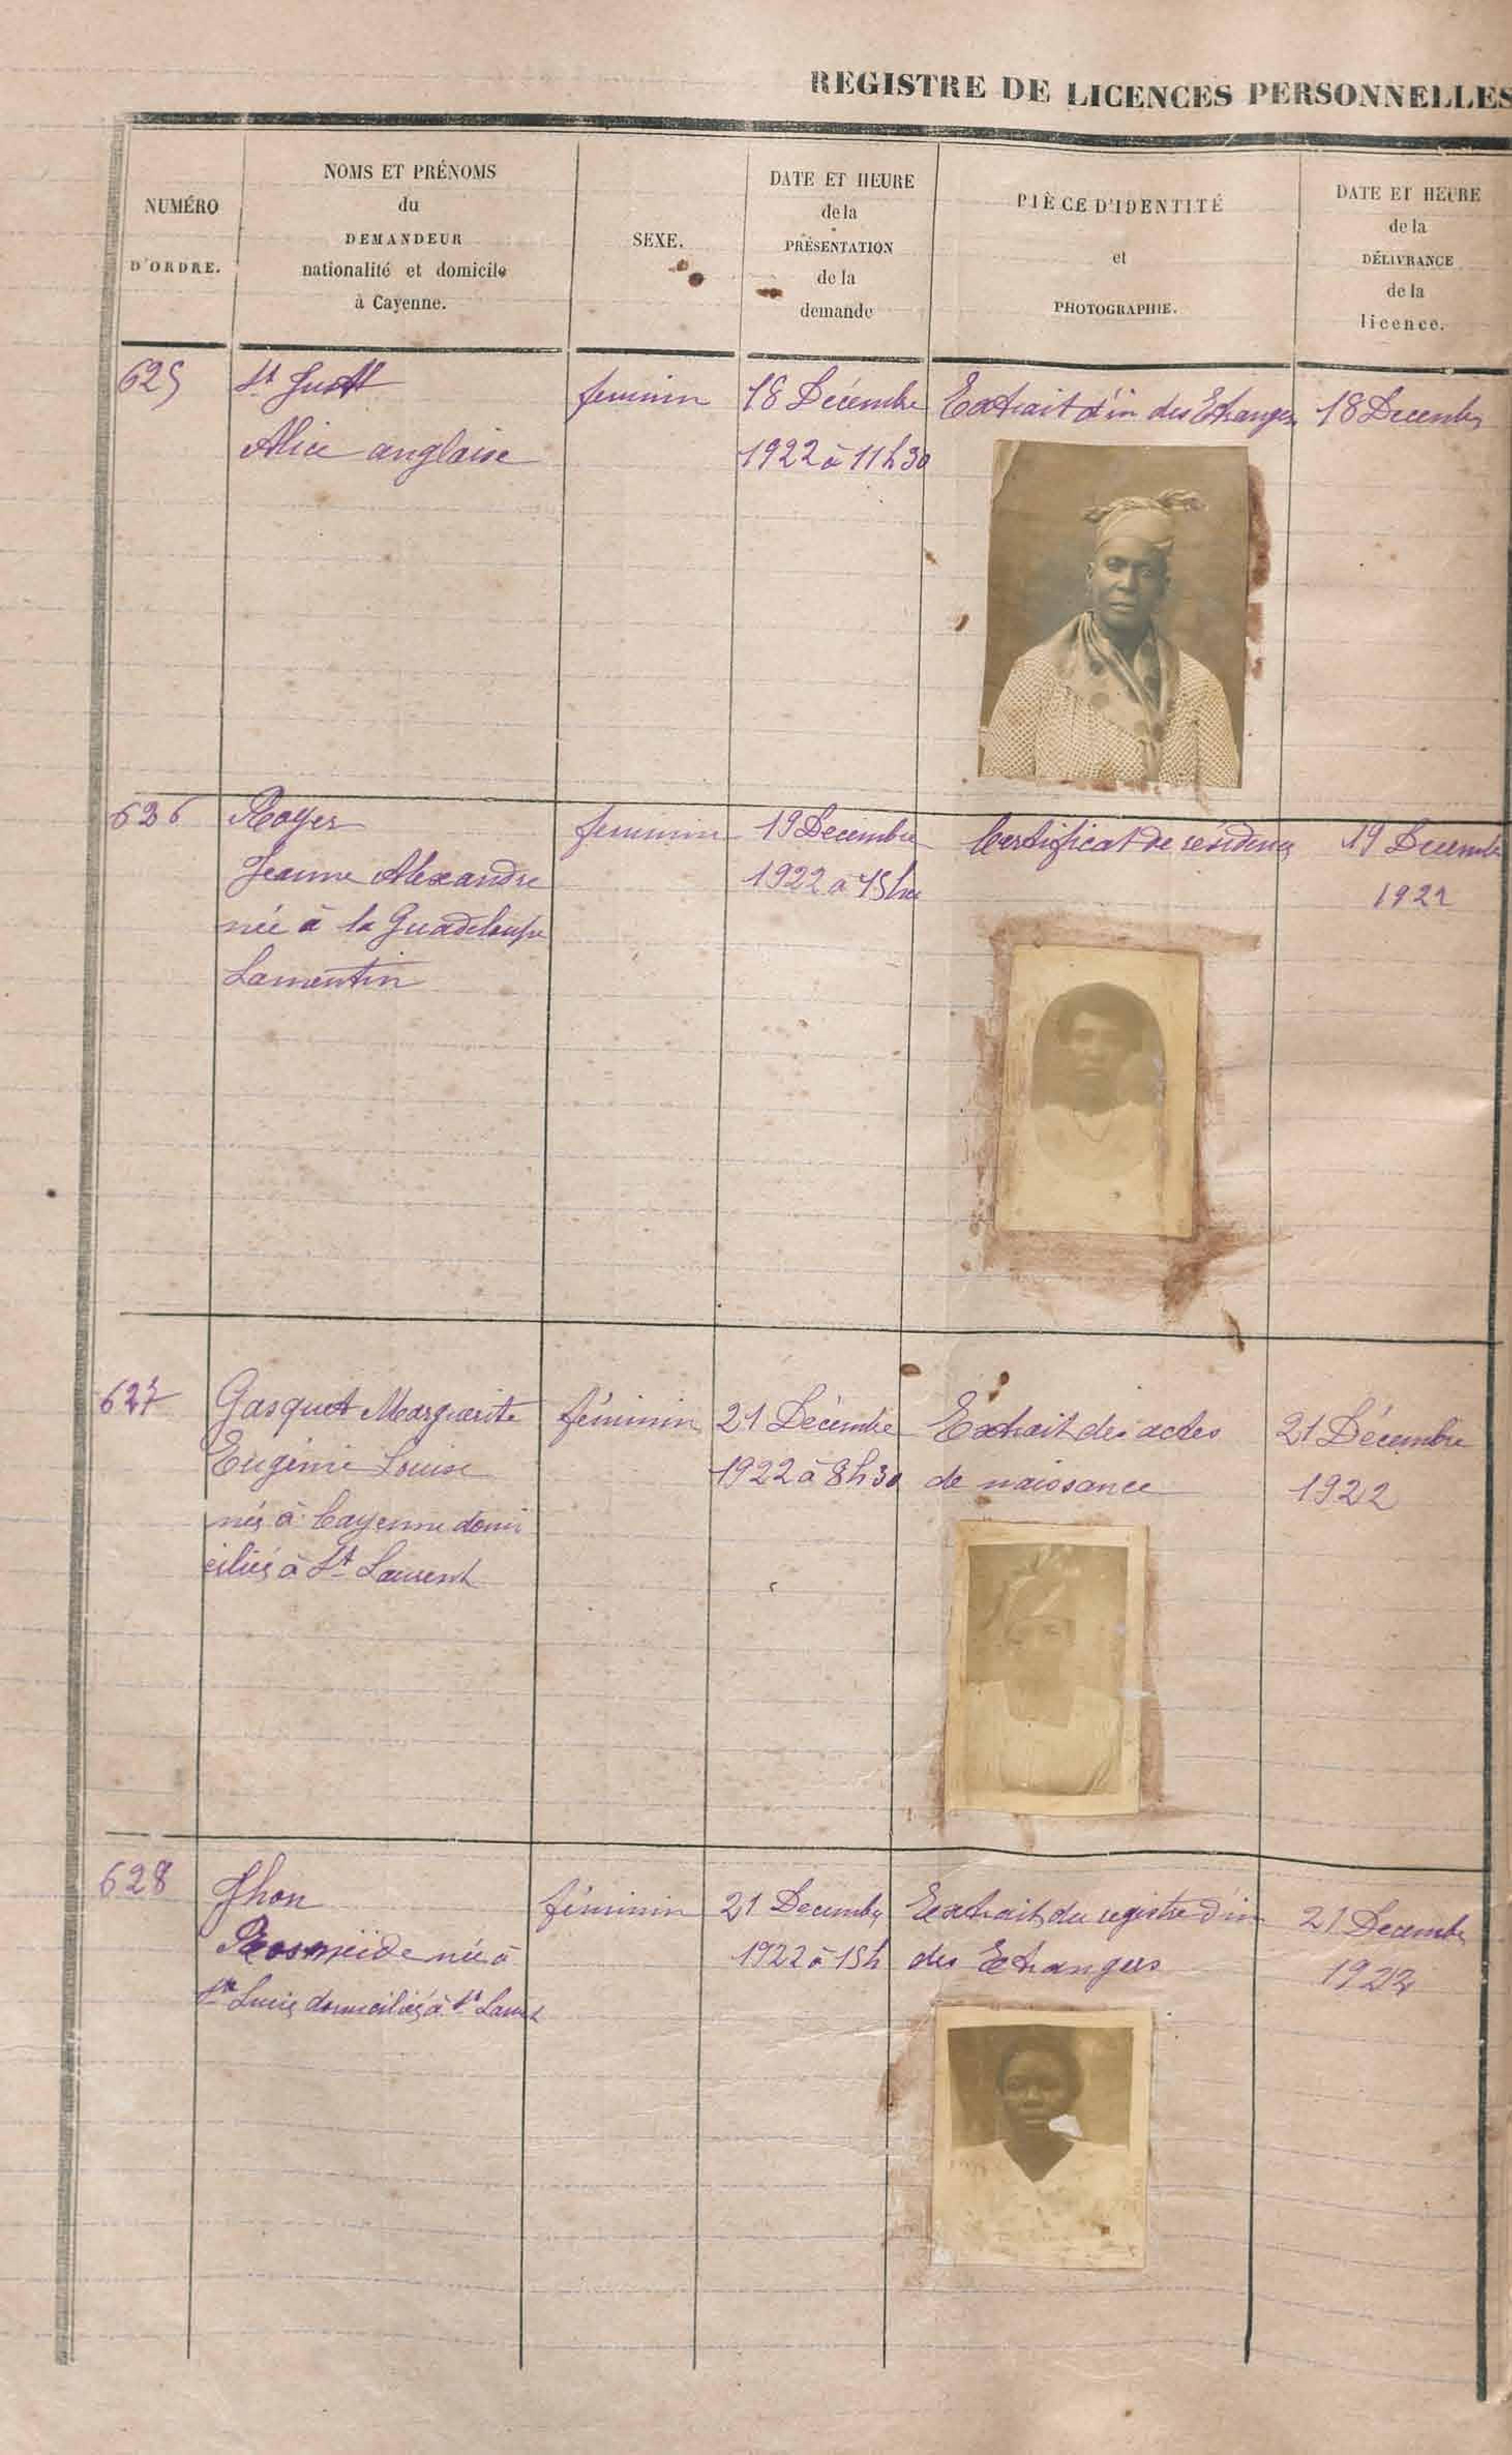 REGISTRE DE LICENCES PERSONNELLES
NUMÉRO
D'ORDRE.
NOMS ET PRÉNOMS
du
DEMANDEUR
nationalité et domicile
à Cayenne.
SEXE.
DATE ET HEURE
de la
PRÉSENTATION
de la
demande
PIÈCE D'IDENTITÉ
et
PHOTOGRAPHIE.
DATE ET HEURE
de la
DÉLIVRANCE
de la
licence.
625
St Just
Alice anglaise
feminin
18 Décembre
1922 à 11h30
Extrait d'im des Etrangers
18 Decembre
626
Royer
Jeanne Alexandre
née à la Guadeloupe
Lamentin
feminin
19 Decembre
1922 a 15h
Certificat de résidence
19 Decembre
1922
627
Gasquet Marguerite
Eugénie Louise
née à Cayenne domi
ciliée à St Laurent
féminin
21 Décembre
1922 à 8h30
Extrait des actes
de naissance
21 Décembre
1922
628
Jhon
née à
Ste Lucie domiciliée à St Laurent
féminin
21 Decembre
1922 à 15h
Extrait du registre d'im
des Etrangers
21 Decembre
1922